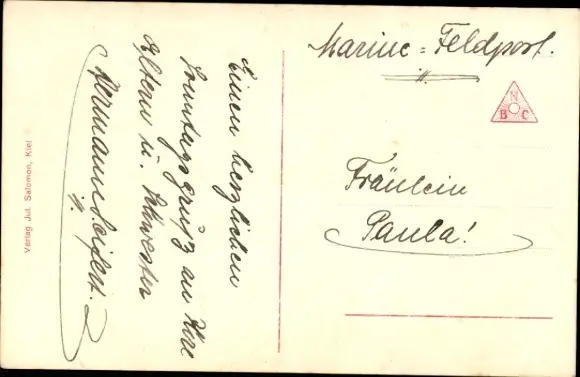 Marine-Feldpost.
N
B C
Fräulein
Paula!
Einen herzlichen
Sonntagsgruß an Ihre
Eltern u. Schwester
Hermann
Verlag Jul. Salomon, Kiel